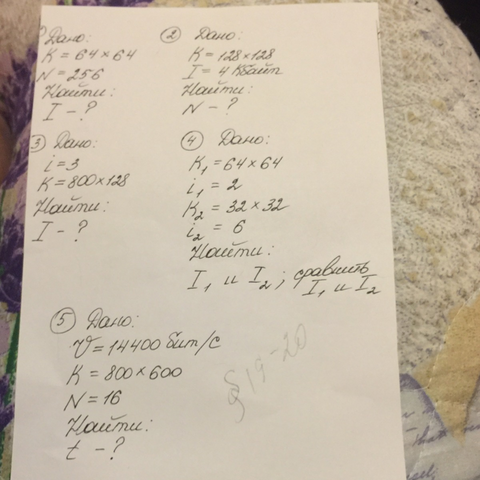 ① Дано:
K = 64 × 64
N = 256
Найти:
I - ?
② Дано:
K = 128 × 128
I = 4 Кбайт
Найти:
N - ?
③ Дано:
i = 3
K = 800 × 128
Найти:
I - ?
④ Дано:
K₁ = 64 × 64
i₁ = 2
K₂ = 32 × 32
i₂ = 6
Найти:
I₁ и I₂; сравнить
I₁ и I₂
⑤ Дано:
V = 14400 бит/с
K = 800 × 600
N = 16
Найти:
t - ?
§ 19-20